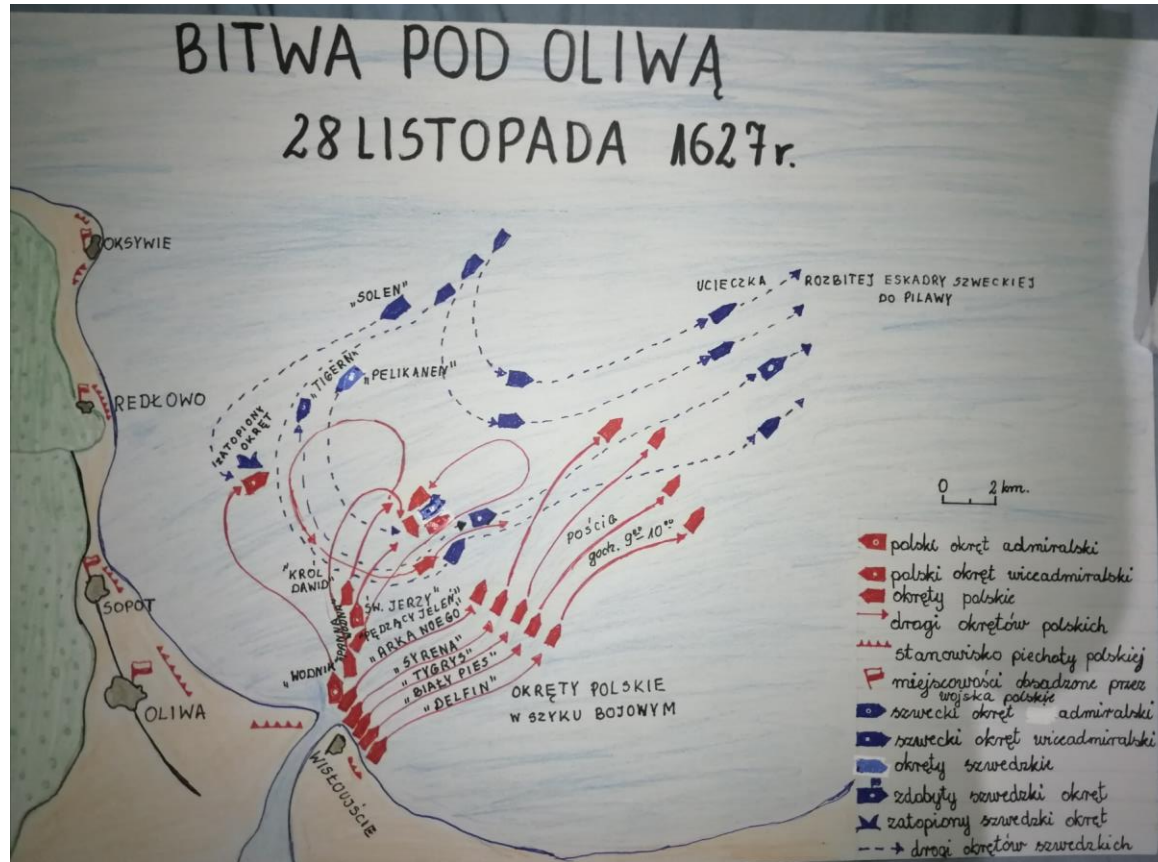 BITWA POD OLIWĄ
28 LISTOPADA 1627r.
OKSYWIE
REDŁOWO
SOPOT
OLIWA
WISŁOUJŚCIE
„SOLEN"
„TIGERN"
„PELIKANEN"
ZATOPIONY
OKRĘT
UCIECZKA
ROZBITEJ ESKADRY SZWECKIEJ
DO PILAWY
POŚCIG
godz. 9⁰⁰-10⁰⁰
„KRÓL
DAWID"
„WODNIK"
„PANNA
ŚW. JERZY"
„PĘDZĄCY JELEŃ"
„ARKA NOEGO"
„SYRENA"
„TYGRYS"
„BIAŁY PIES"
„DELFIN"
OKRĘTY POLSKIE
W SZYKU BOJOWYM
0 2 km.
polski okręt admiralski
polski okręt wiceadmiralski
okręty polskie
drogi okrętów polskich
stanowisko piechoty polskiej
miejscowości obsadzone przez
wojska polskie
szwecki okręt admiralski
szwecki okręt wiceadmiralski
okręty szwedzkie
zdobyty szwedzki okręt
zatopiony szwedzki okręt
drogi okrętów szwedzkich